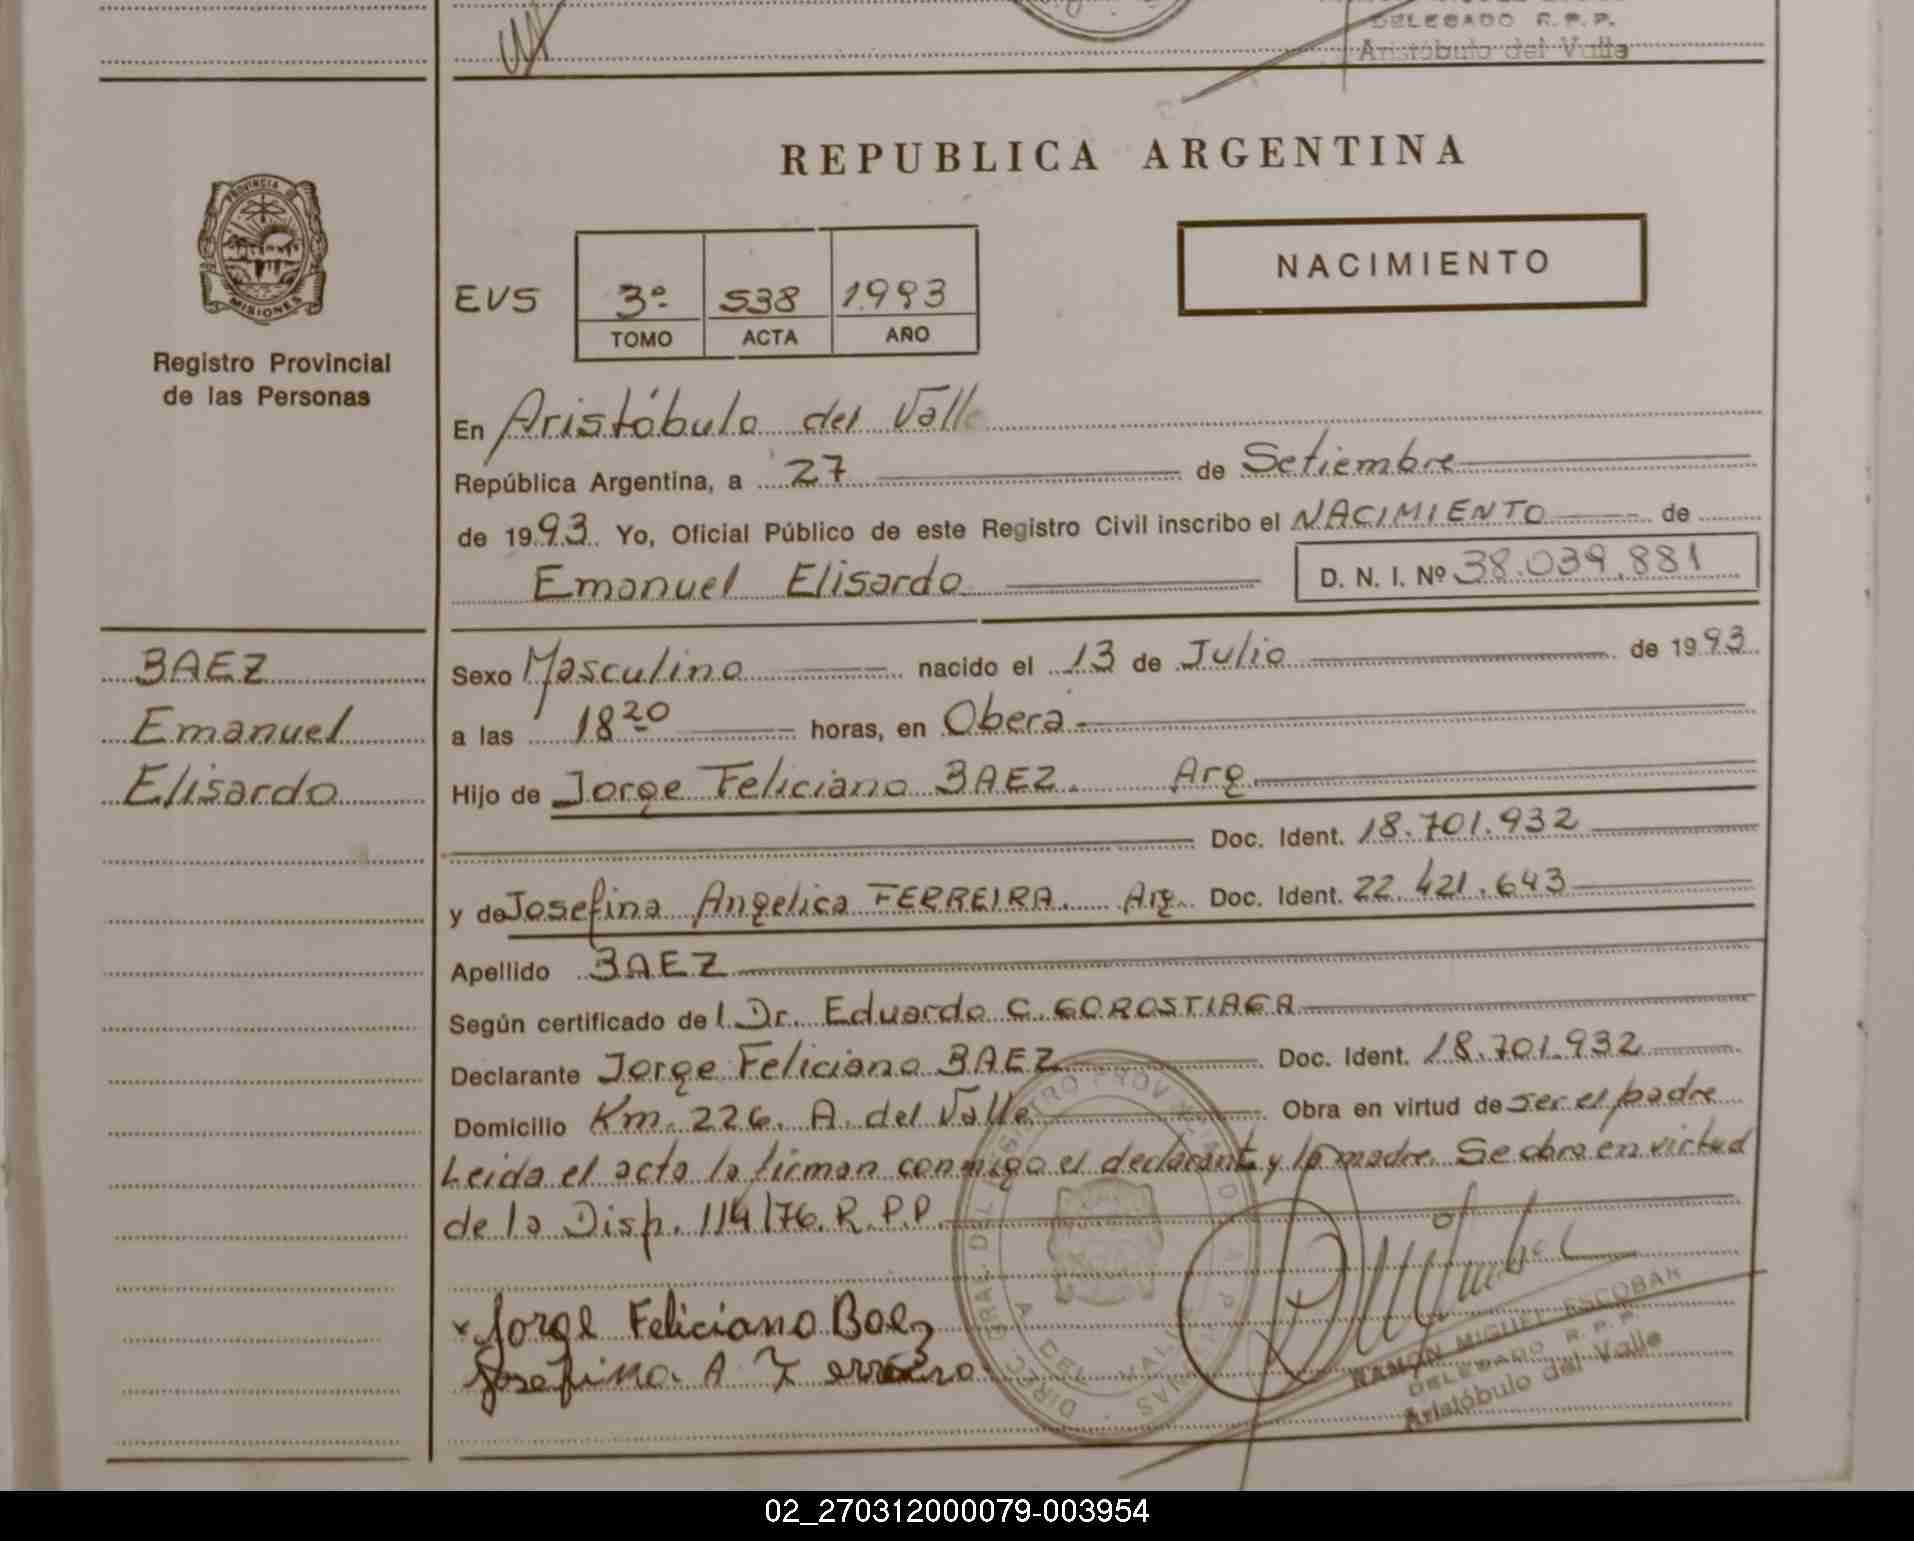 DELEGADO R.P.P.
Aristóbulo del Valle
REPUBLICA ARGENTINA
PROVINCIA DE
MISIONES
Registro Provincial
de las Personas
NACIMIENTO
EVS 3º 538 1993
TOMO ACTA AÑO
En Aristóbulo del Valle
República Argentina, a 27 de Setiembre
de 1993 Yo, Oficial Público de este Registro Civil inscribo el NACIMIENTO de
Emanuel Elisardo D. N. I. Nº 38.039.881
BAEZ
Emanuel
Elisardo
Sexo Masculino nacido el 13 de Julio de 1993
a las 18 20 horas, en Obera
Hijo de Jorge Feliciano BAEZ. Arg
Doc. Ident. 18.701.932
y de Josefina Angelica FERREIRA. Arg. Doc. Ident. 22.421.643
Apellido BAEZ
Según certificado del Dr. Eduardo C. GOROSTIAGA
Declarante Jorge Feliciano BAEZ Doc. Ident. 18.701.932
Domicilio Km. 226. A. del Valle Obra en virtud de ser el padre
Leida el acta la firman conmigo el declarante y la madre. Se obra en virtud
de la Disp. 114/76. R.P.P.
x Jorge Feliciano Baez
Josefina A
RAMON MIGUEL ESCOBAR
DELEGADO R.P.P.
Aristóbulo del Valle
02_270312000079-003954